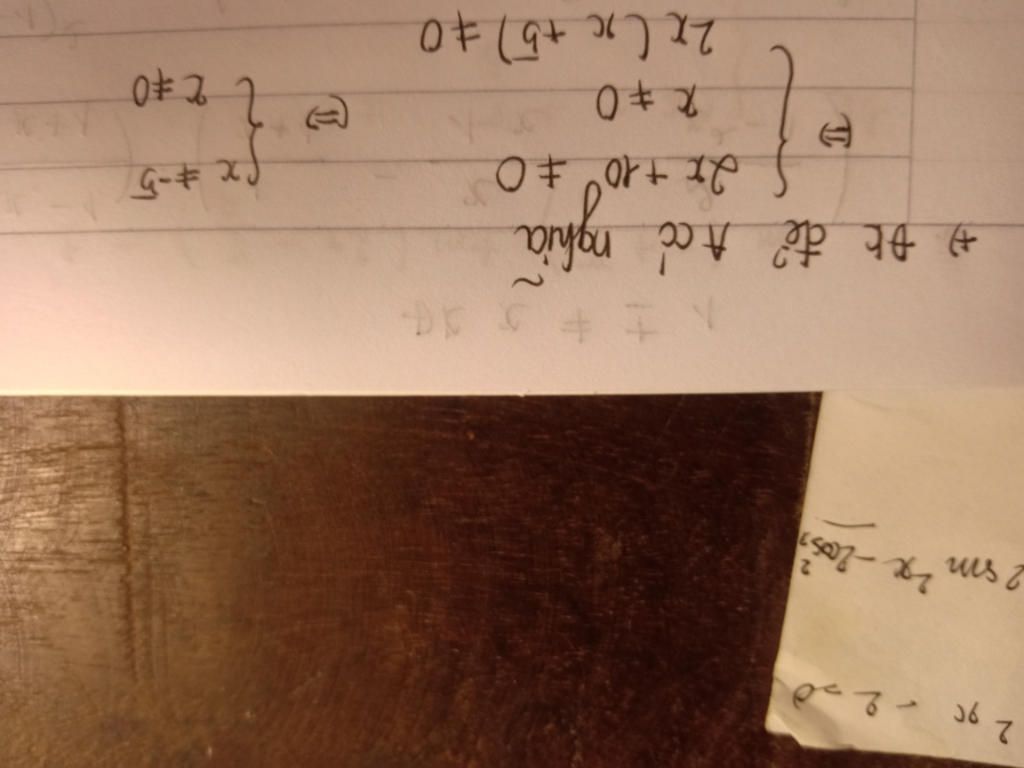 +) ĐK để A có nghĩa
⇔ { 2x + 10 ≠ 0
x ≠ 0
2x(x + 5) ≠ 0
⇔ { x ≠ -5
x ≠ 0
2 sin²x - 2cos²
x - 2 = 0